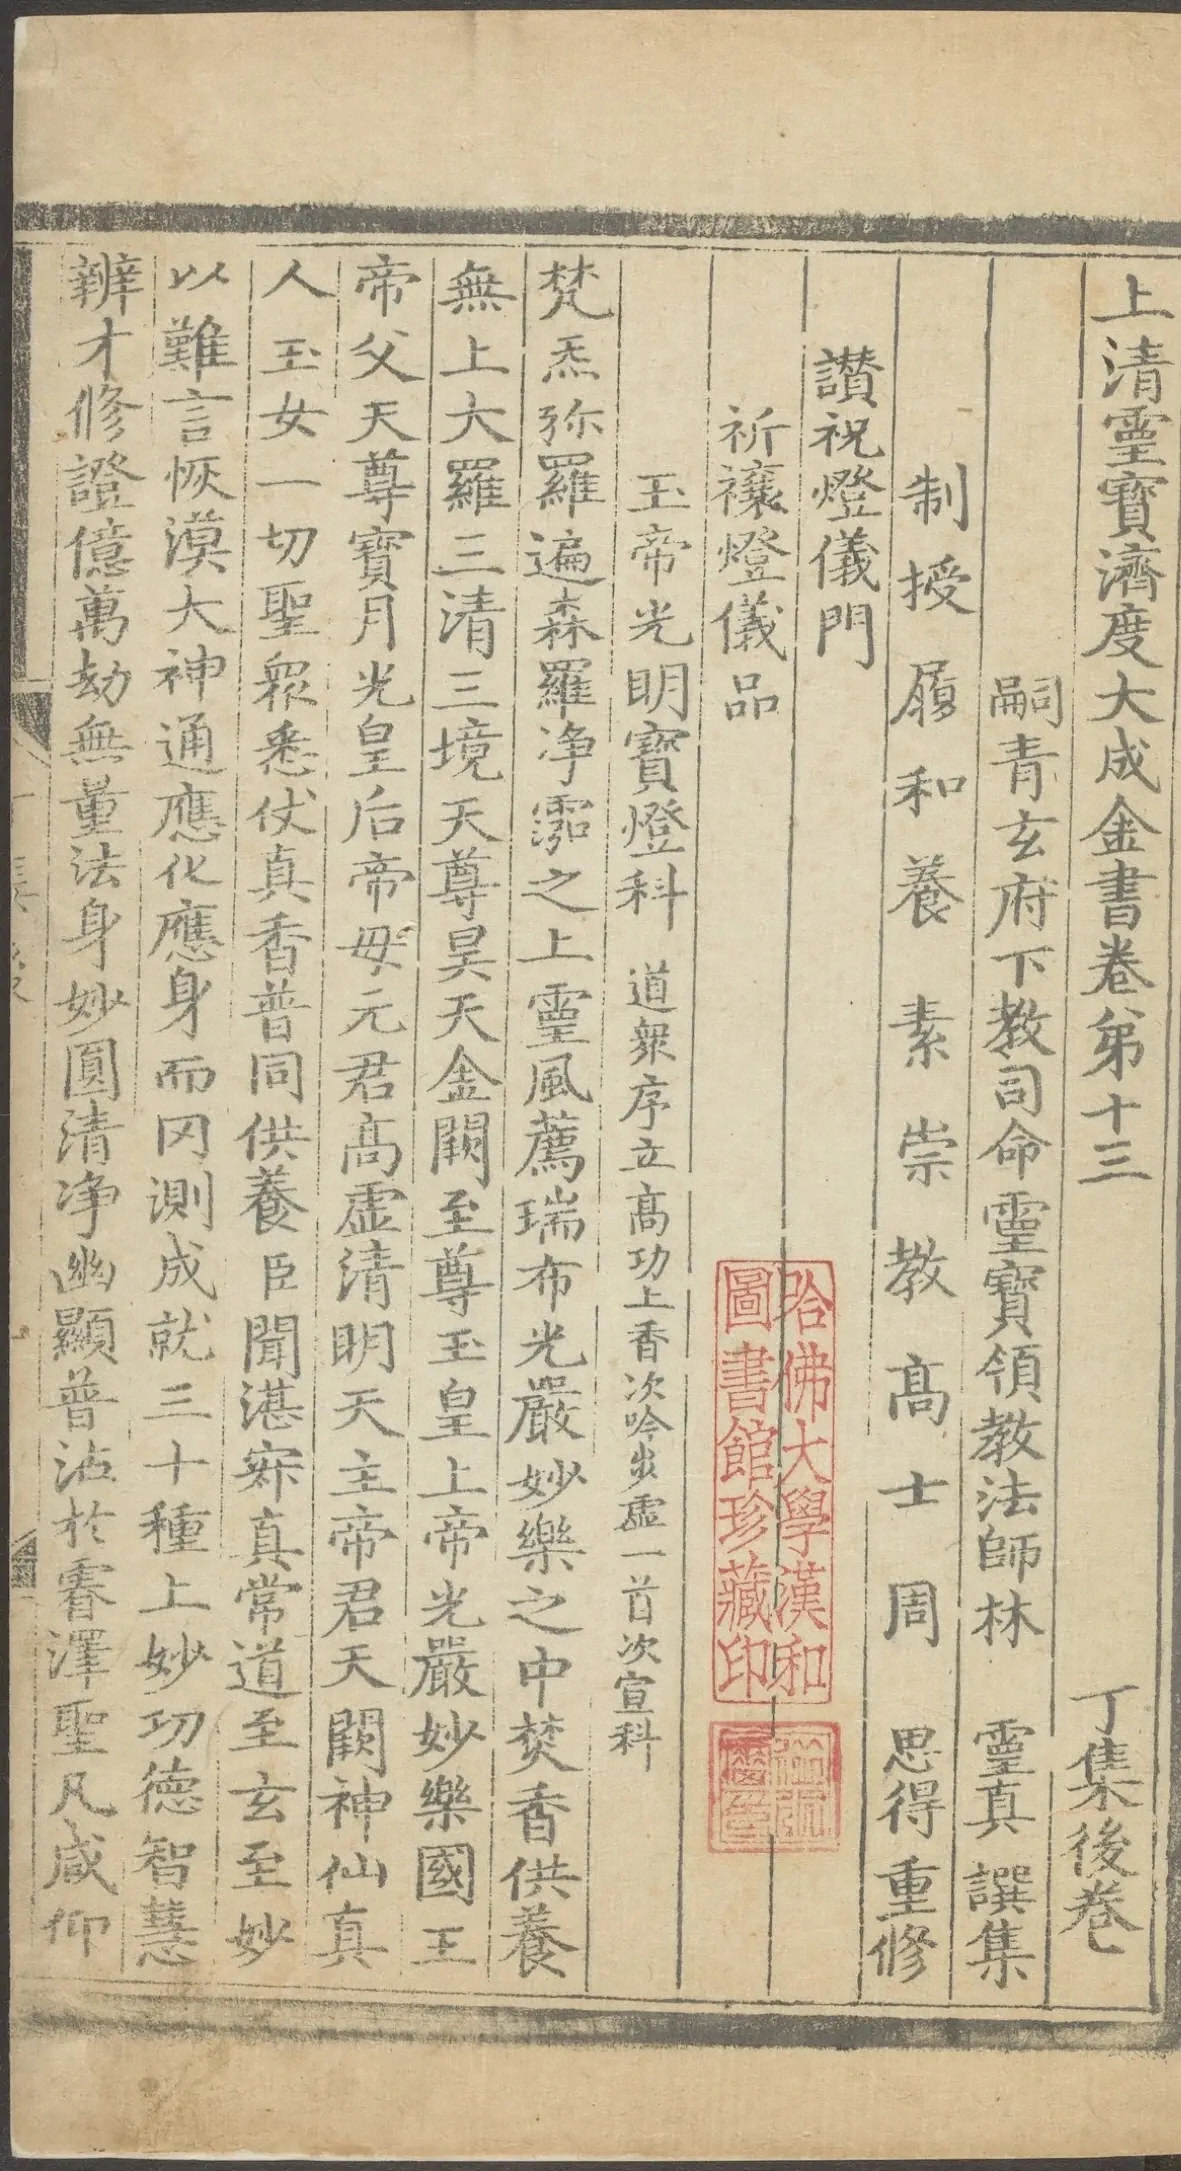 上清靈寶濟度大成金書卷第十三　丁集後卷一
嗣青玄府下教司命靈寶領教法師林　靈真　譔集
制授履和養素崇教高士周　思得　重修
讃祝燈儀門
祈禳燈儀品
玉帝光明寶燈科　道衆序立高功上香次吟步虛一首次宣科
梵炁弥羅遍森羅净𣽂之上靈風薦瑞布光嚴妙樂之中焚香供養
無上大羅三清三境天尊昊天金闕至尊玉皇上帝光嚴妙樂國王
帝父天尊寶月光皇后帝母元君髙虛清明天主帝君天闕神仙真
人玉女一切聖衆悉仗真香普同供養臣聞湛寂真常道至玄至妙
以難言恢漠大神通應化應身而罔測成就三十種上妙功德智慧
辨才修證億萬劫無量法身妙圓清净幽顯普沾於睿澤聖凡咸仰
哈佛大學漢和
圖書館珍藏印